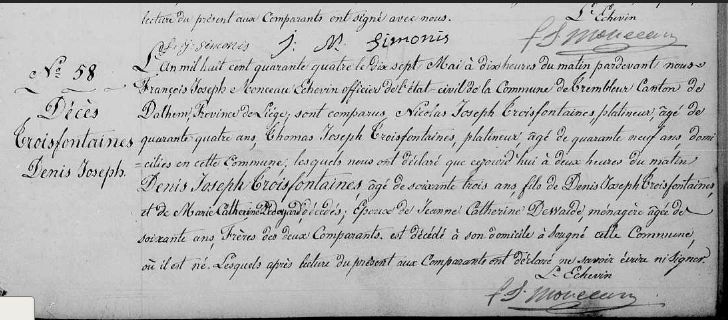 lecture du présent aux Comparants ont signé avec nous.
L'Echevin
J. M. Simonis
No 58
Décès
Troisfontaines
Denis Joseph.
L'An mil huit cent quarante quatre le dix sept Mai à dix heures du matin pardevant nous
François Joseph Monceau Echevin officier de l'état civil de la Commune de Trembleur Canton de
Dalhem, Province de Liège; sont comparus, Nicolas Joseph Troisfontaines, platineur, âgé de
quarante quatre ans, Thomas Joseph Troisfontaines, platineur âgé de quarante neuf ans, domi
=ciliés en cette Commune, lesquels nous ont déclaré que cejourd'hui à deux heures du matin
Denis Joseph Troisfontaines, âgé de soixante trois ans fils de Denis Joseph Troisfontaines,
et de Marie Catherine décédés; Epoux de Jeanne Catherine Dewalde, ménagère âgée de
soixante ans, Frères des deux Comparants. est décédé à son domicile à Sougné cette Commune,
où il est né. Lesquels après lecture du présent aux Comparants ont déclaré ne savoir écrire ni Signer.
L'Echevin